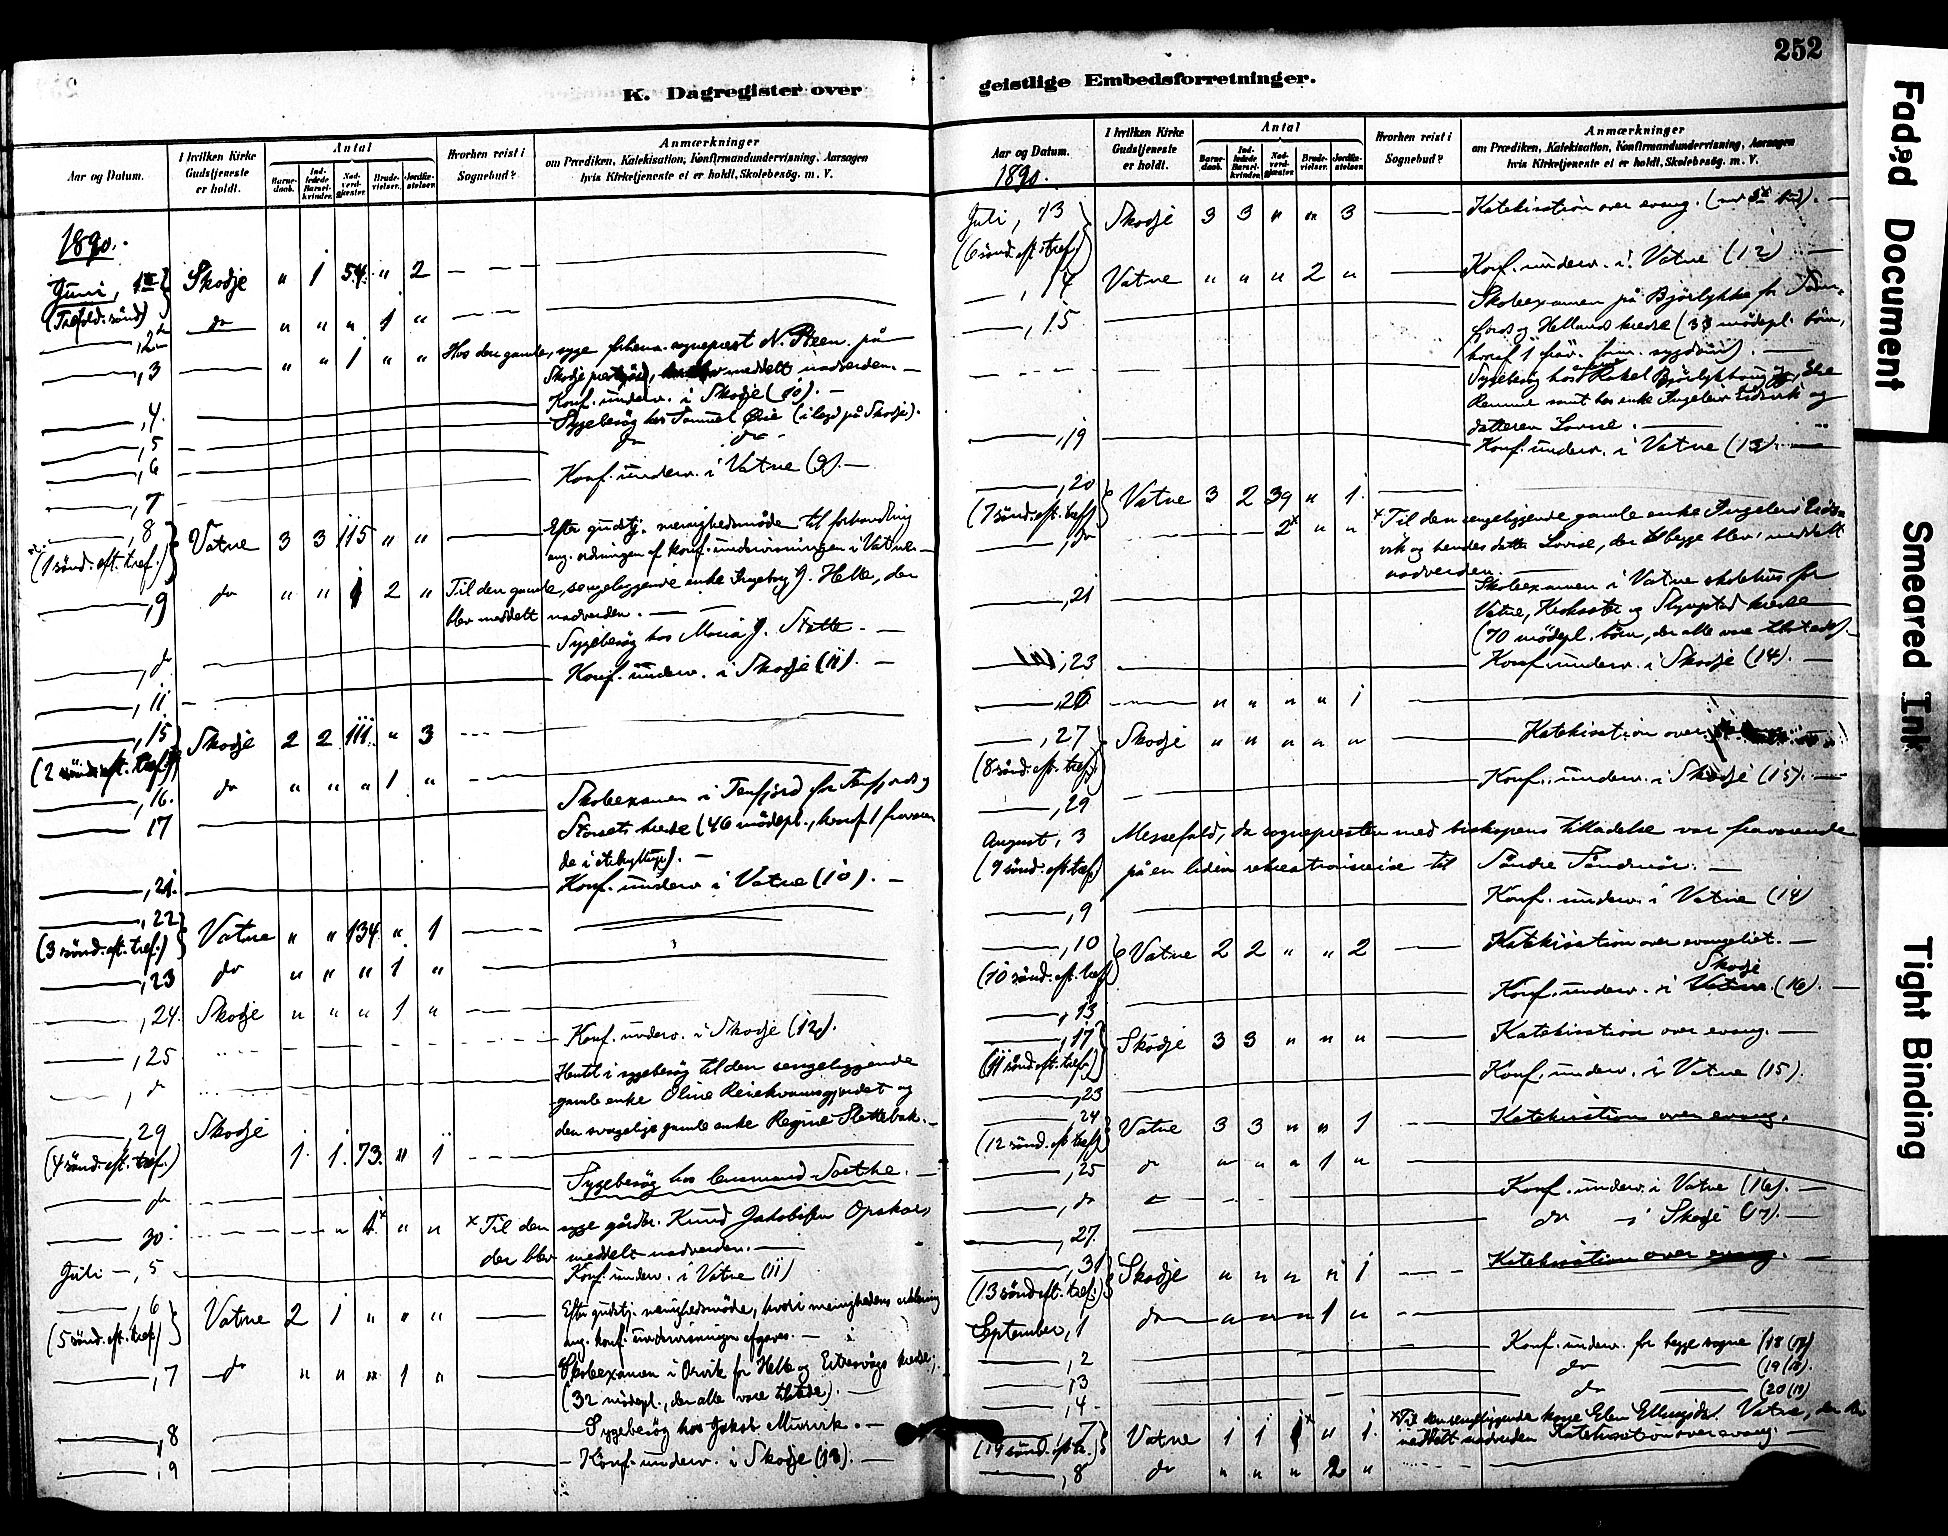 252
K. Dagregister over
geistlige Embedsforretninger.
Aar og Datum.
I hvilken Kirke Gudstjeneste er holdt.
Antal
Barnedaab.
Indledede Barselkvinder.
Nadverdgjæster.
Brudevielser.
Jordfæstelser.
Hvorhen reist i Sognebud?
Anmærkninger
om Prædiken, Katekisation, Konfirmandundervisning, Aarsagen
hvis Kirketjeneste ei er holdt, Skolebesøg. m. V.
1890.
Juni, 1ste Skodje " 1 54. " 2
(Trefold. sønd)
2den do " " " 1 "
, 3 " " 1 " " Hos den gamle, syge sognepræst N. på
Skodje meddelt nadverden. —
, 4. Konf. underv. i Skodje (10). —
, 5 Sygebesøg hos Samuel Øie (i lægd på Skodje).
, 6 do do
, 7 Konf. underv. i Vatne (9). —
, 8 Vatne 3 3 115 " " Efter gudstj. menighedsmøde til forhandling
(1 sønd. eft. tref.) ang. ordningen af konf. undervisningen i Vatne. —
, 9 do " " 1 2 " Til den gamle, sengeliggende enke Ingeborg J. Helle, der
blev meddelt nadverden. —
, do Sygebesøg hos Maria J. Slette. —
, 11 Konf. underv. i Skodje (11). —
, 15 Skodje 2 2 111. " 3
(2 sønd. eft. tref.)
, 16. do " " " 1 "
17 Skoleexamen i Tenfjord for Tenfjords og
Storsets kreds (46 mødepl., hvoraf 1 fraværen
de i utskyttup). —
, 21. Konf. underv. i Vatne (10). —
, 22 Vatne " " 134. " 1
(3 sønd. eft. tref.)
, 23 do " " " 1 "
, 24. Skodje " " " 1 "
, 25 Konf. underv. i Skodje (12).
, do Hentet i sygebesøg til den sengeliggende
gamle enke Oline og
den svagelige gamle enke Regine Slettebak. —
, 29 Skodje 1. 1. 73. " 1
(4 sønd. eft. tref.)
do Sygebesøg hos
30. " 1x " " x Til den syge gårdbr. Knud Jakobsen Opskar,
der blev meddelt nadverden. —
Juli —, 5 Konf. underv. i Vatne (11)
, 6 Vatne 2 1 " " " Efter gudstj. menighedsmøde, hvori menighedens erklæring
(5 sønd. eft. tref.) ang. konf. undervisningen afgaves. —
, 7 do " " " 1 " Skoleexamen i Ørvik for Helle og kreds;
(32 mødepl., der alle vare tilstede). —
, 8 Sygebesøg hos Jakob —
, 9 Konf. underv. i Skodje (13). —
1890.
Juli, 13 Skodje 3 3 " " 3 Katekisation over evang.
(6 sønd. eft. tref.)
, 14 Vatne " " " 2 " Konf. underv. i Vatne (12) —
, 15 Skoleexamen på Bjørlykke for
og Hellands kreds (33 mødepl. børn,
hvoraf 1 frav. form. sygdom). —
Sygebesøg hos Rakel
samt hos enke Ingeborg Eidsvik og
datteren Lovise. —
, 19 Konf. underv. i Vatne (13). —
, 20 Vatne 3 2 39 " 1.
(7 sønd. eft. tref.)
, do 2x " " x Til den sengeliggende gamle enke Ingeborg Eids-
vik og hendes datter Lovise, der begge blev meddelt
nadverden. —
, 21 Skoleexamen i Vatne skolehus for
Vatne, og kredse
(70 mødepl. børn, der alle vare tilstede). —
, 23 Konf. underv. i Skodje (14). —
, 26 " " " " 1
, 27 Skodje " " " " " Katekisation over
(8 sønd. eft. tref.)
, 29 Konf. underv. i Skodje (15). —
August, 3 Messefald, da sognepresten med biskopens tilladelse var fraværende
(9 sønd. eft. tref.) på en liden rekreationsreise til Søndre Søndmør. —
, 9 Konf. underv. i Vatne (14)
, 10 Vatne 2 2 " " 2 Katekisation over evangeliet. —
(10 sønd. eft. tref.)
Skodje
, 13 Konf. underv. i Vatne (16). —
, 17 Skodje 3 3 " " " Katekisation over evang. —
(11 sønd. eft. tref.)
, 23 Konf. underv. i Vatne (15).
24 Vatne 3 3 " " 1 Katekisation over evang.
(12 sønd. eft. tref.)
, 25 do " " " 1 "
, do Konf. underv. i Vatne (16). —
, 27. do i Skodje (17). —
, 31 Skodje " " " " 1 Katekisation over evang. —
(13 sønd. eft. tref.)
September, 1 do " " " 1 "
, 2 Konf. underv. for begge sogne (18 (17)
, 3 do (19 (18).
, 4. do (20 (19)
7 Vatne 1 1 1x " 1. x Til den sengeliggende Vatne, der blev
(14 sønd. eft. tr.) meddelt nadverden Katekisation over evang. —
, 8 do " " " 2 "
Faded Document
Smeared Ink
Tight Binding